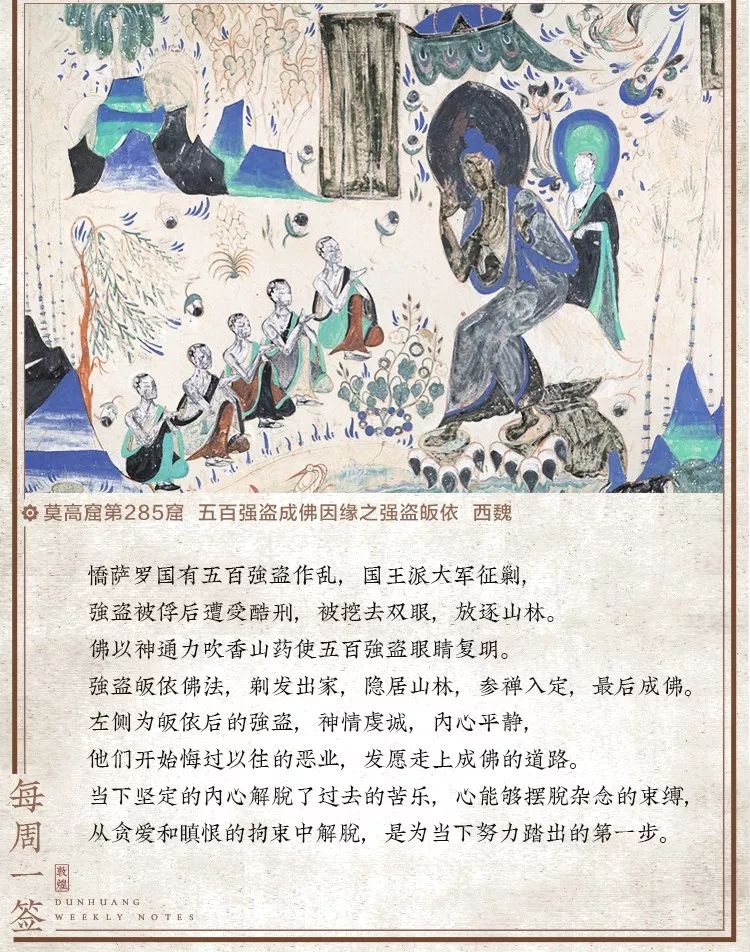 莫高窟第285窟 五百强盗成佛因缘之强盗皈依 西魏
憍萨罗国有五百強盗作乱，国王派大军征剿，
強盗被俘后遭受酷刑，被挖去双眼，放逐山林。
佛以神通力吹香山药使五百強盗眼睛复明。
強盗皈依佛法，剃发出家，隐居山林，参禅入定，最后成佛。
左侧为皈依后的強盗，神情虔诚，内心平静，
他们开始悔过以往的恶业，发愿走上成佛的道路。
当下坚定的内心解脱了过去的苦乐，心能够摆脱杂念的束缚，
从贪爱和瞋恨的拘束中解脱，是为当下努力踏出的第一步。
每周一签
敦煌
DUNHUANG
WEEKLY NOTES